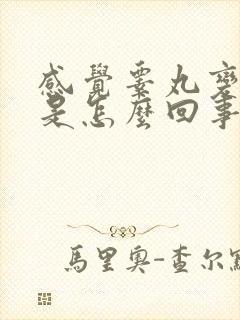 感覺睪丸變
是怎麼回事
馬里奧-查尔